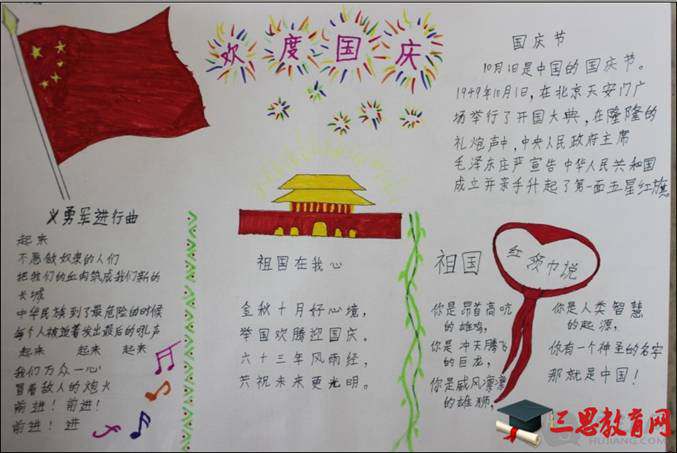 欢度国庆
国庆节
10月1日是中国的国庆节。
1949年10月1日,在北京天安门广
场举行了开国大典,在隆隆的
礼炮声中,中央人民政府主席
毛泽东庄严宣告中华人民共和国
成立并亲手升起了第一面五星红旗
义勇军进行曲
起来
不愿做奴隶的人们
把我们的血肉筑成我们新的
长城
中华民族到了最危险的时候
每个人被迫着发出最后的吼声
起来 起来 起来
我们万众一心
冒着敌人的炮火
前进!前进!
前进!进
祖国在我心
金秋十月好心境,
举国欢腾迎国庆。
六十三年风雨经,
共祝未来更光明。
祖国
红领巾说
你是昂首高吭
的雄鸡,
你是冲天腾飞
的巨龙,
你是威风凛凛
的雄狮,
你是人类智慧
的起源,
你有一个神圣的名字
那就是中国!
三思教育网
HUJIANG.COM